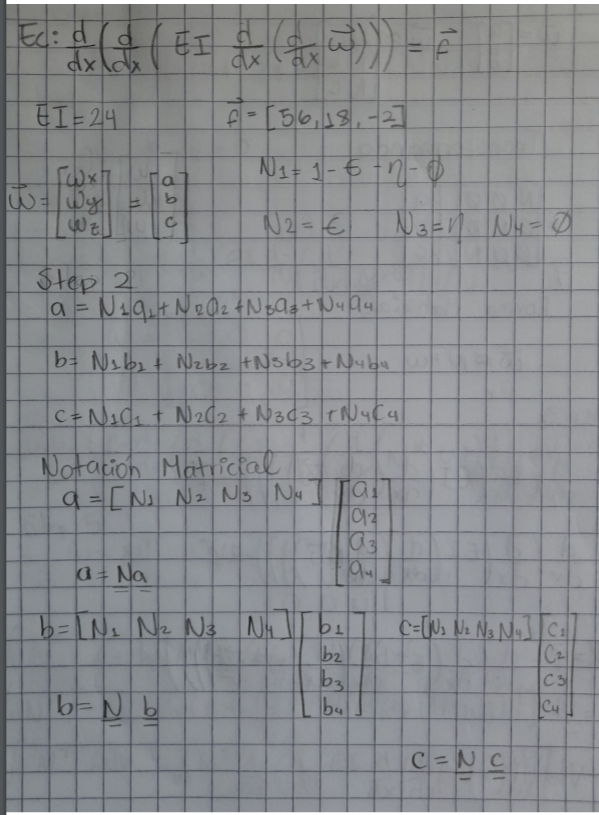 Ec: d/dx(d/dx( EI d/dx(d/dx w⃗))) = f⃗
EI=24 f⃗=[56,18,-2]
w⃗=[wx wy wz] = [a b c] N1=1-ϵ-η-∅
N2=ϵ N3=η N4=∅
Step 2
a = N1a1+N2a2+N3a3+N4a4
b= N1b1 + N2b2 +N3b3+N4b4
c=N1C1 + N2C2 + N3C3 +N4C4
Notación Matricial
a=[N1 N2 N3 N4] [a1 a2 a3 a4]
a=Na
b=[N1 N2 N3 N4] [b1 b2 b3 b4] C=[N1 N2 N3 N4] [C1 C2 C3 C4]
b= N b
C = N C